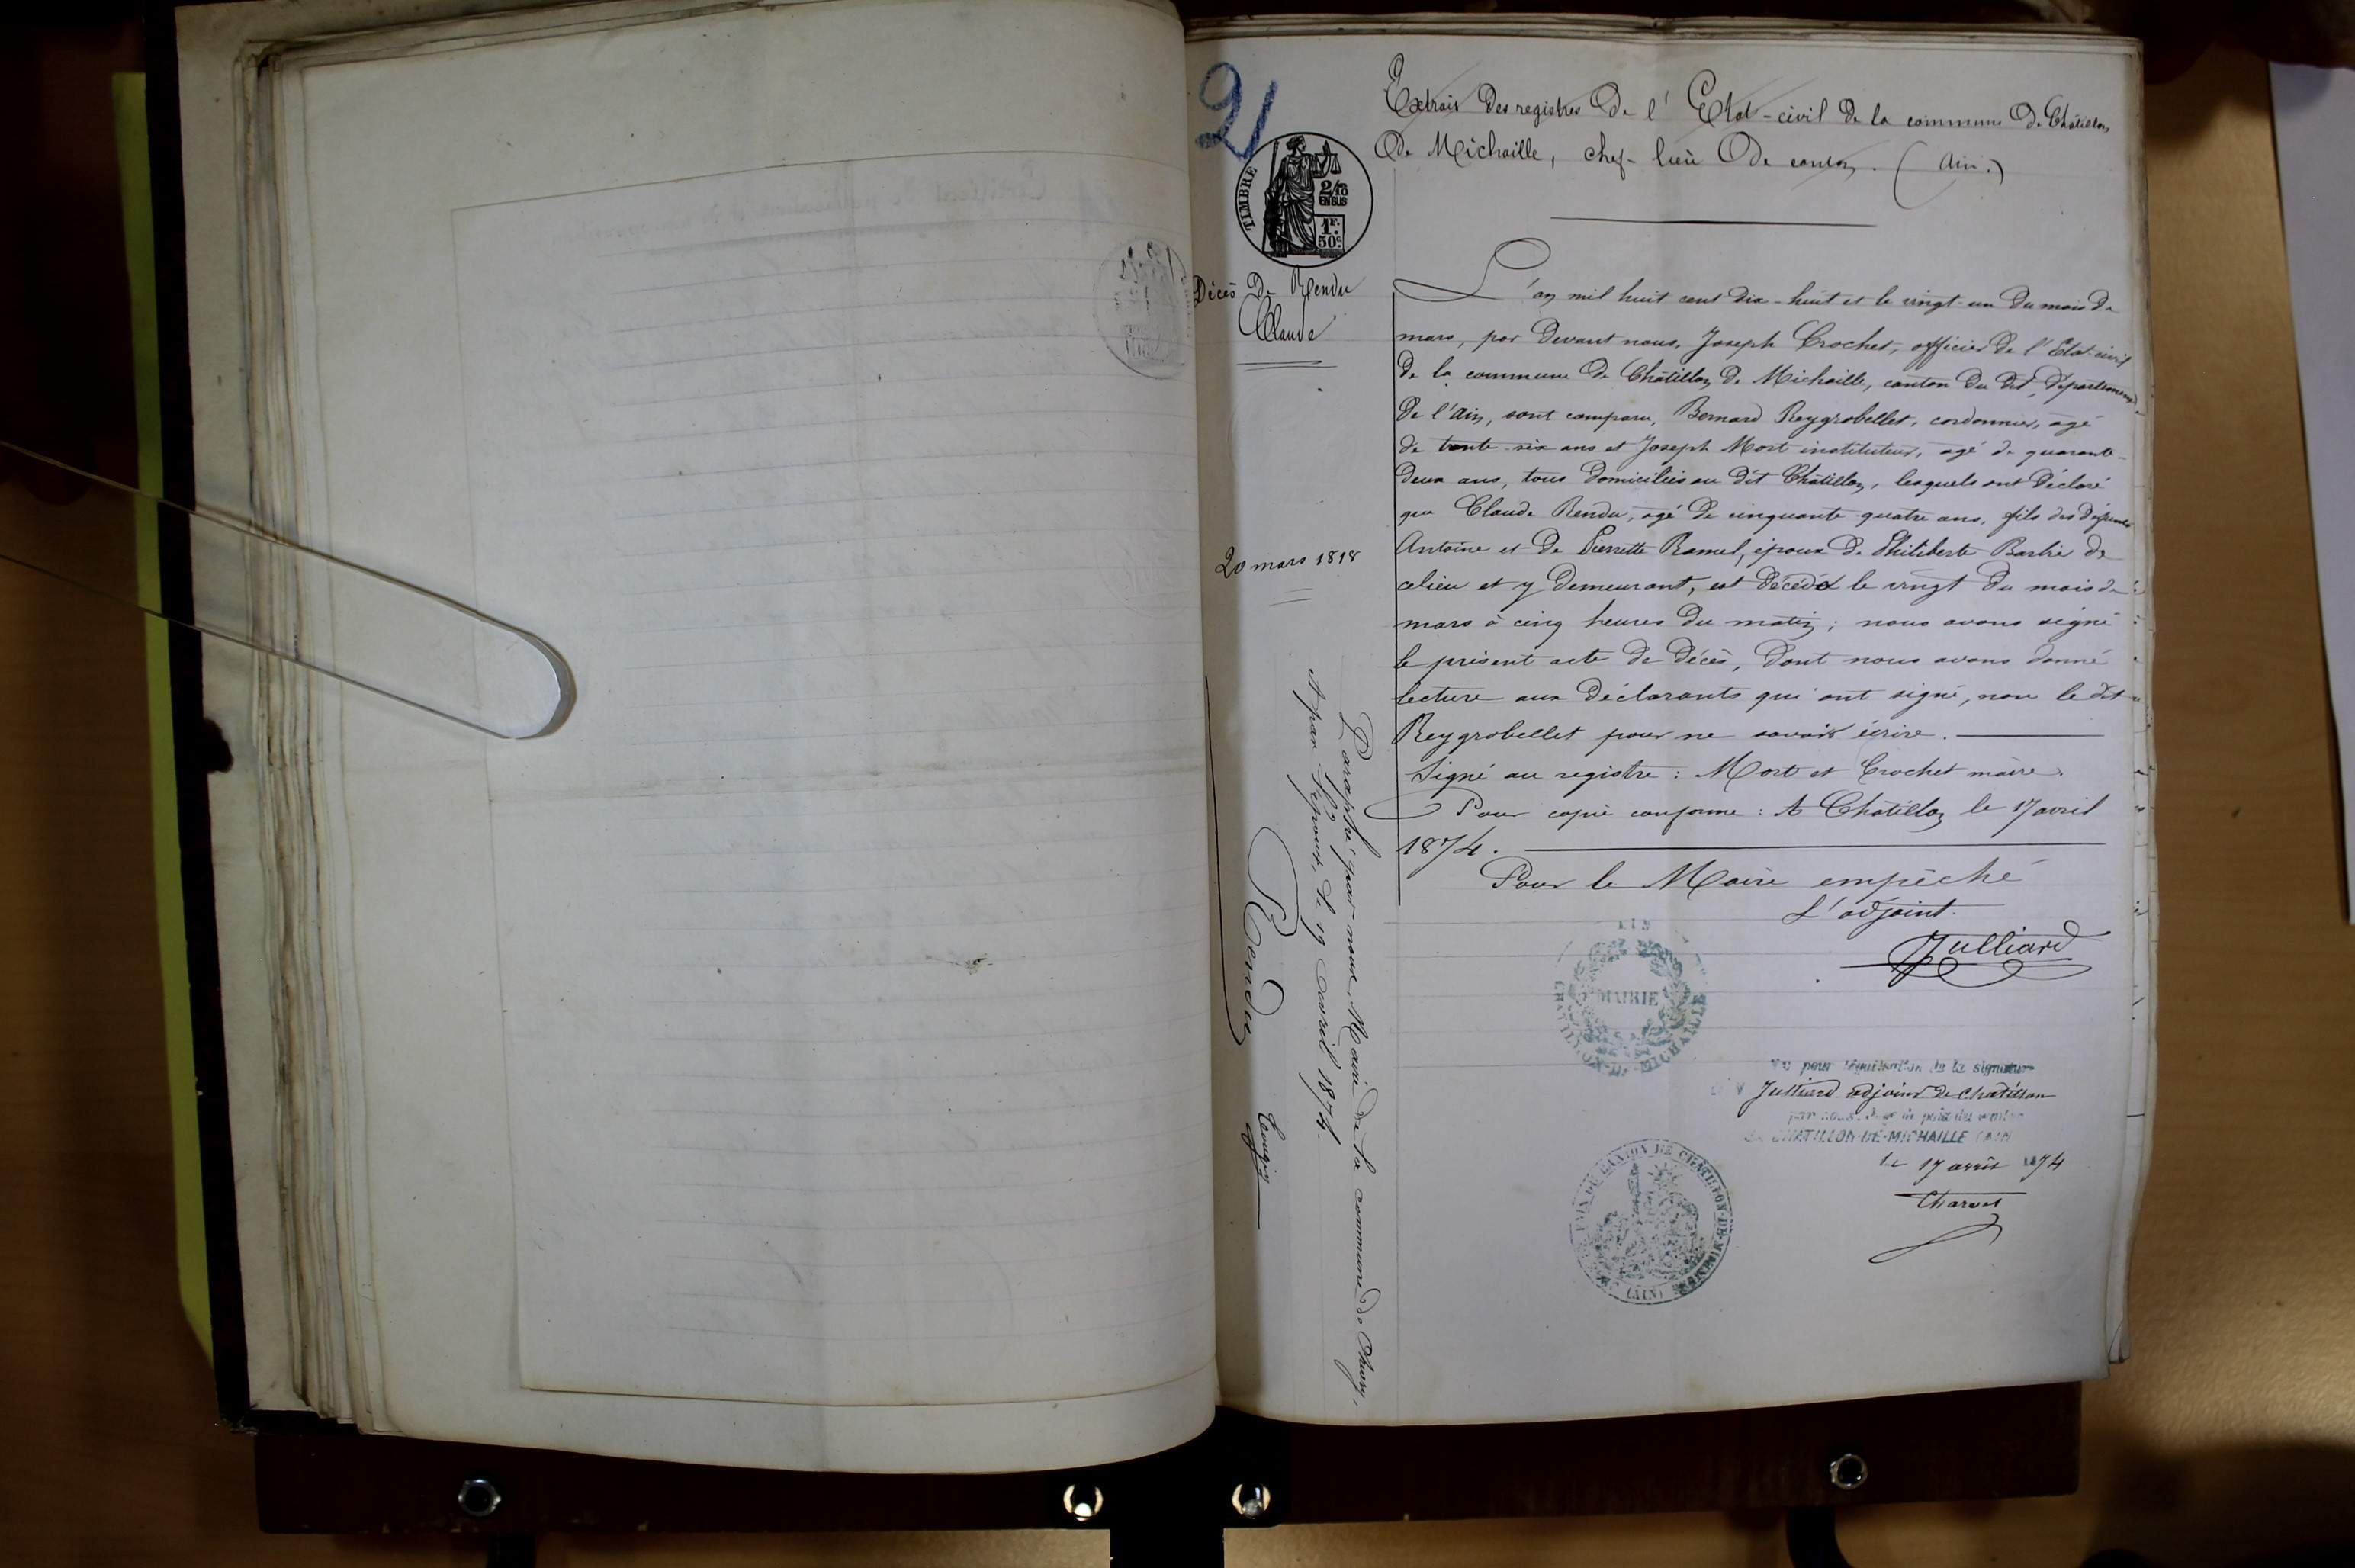 2
Extrait des registres de l'Etat-civil de la commune de Châtillon
de Michaille, chef-lieu de canton. (Ain.)
TIMBRE
2/10
EN SUS
1F.
50c
Décès de Rendu
Claude
L'an mil huit cent dix-huit et le vingt-un du mois de
mars, par devant nous, Joseph Crochet, officier de l'Etat-civil
de la commune de Châtillon de Michaille, canton du dit, département
de l'Ain, sont comparu, Bernard Reygrobellet, cordonnier, agé
de trente-six ans et Joseph Mort instituteur, agé de quarante-
deux ans, tous domiciliés au dit Châtillon, lesquels ont déclaré
que Claude Rendu, agé de cinquante quatre ans, fils des défunts
Antoine et de Pierrette Ramel, époux de Philiberte Barbier de
20 mars 1818
celieu et y demeurant, est décédé le vingt du mois de
mars à cinq heures du matin; nous avons signé
le présent acte de décès, dont nous avons donné
lecture aux déclarants qui ont signé, non le dit
Reygrobellet pour ne savoir écrire.
Signé au registre: Mort et Crochet maire.
Pour copie conforme: A Châtillon le 17 avril
1874.
Pour le Maire empêché
L'adjoint.
Julliard
MAIRIE
CHATILLON-DE-MICHAILLE
Vu pour légalisation de la signature
Julliard adjoint de Chatillon
par nous, Juge de paix du canton
de CHATILLON-DE-MICHAILLE (AIN)
le 17 avril 1874
Charvet
PAIX DU CANTON DE CHATILLON-DE-MICHAILLE
(AIN)
Paraphé par nous, Maire de la commune de
A par Sépour, le 19 avril 1874.
Rendu